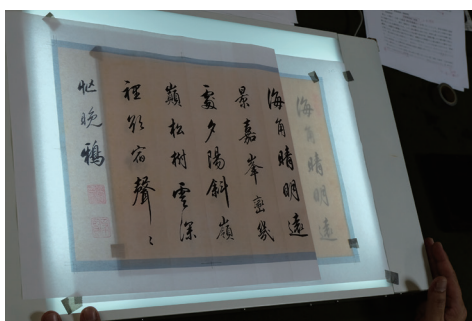 海角晴明遠
海角晴明遠
景嘉峯密幾
處夕陽斜嶺
巔松樹雲深
裡欲宿聲〻
晚鴉